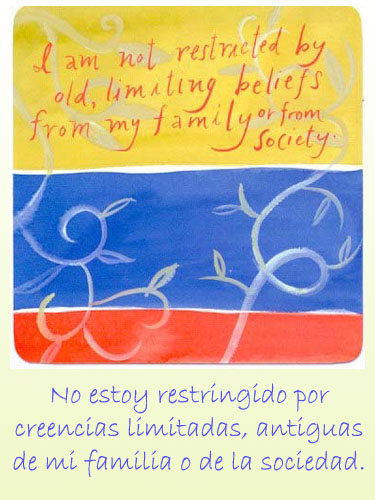 I am not restricted by
old, limiting beliefs
from my family or from
society.
No estoy restringido por
creencias limitadas, antiguas
de mi familia o de la sociedad.